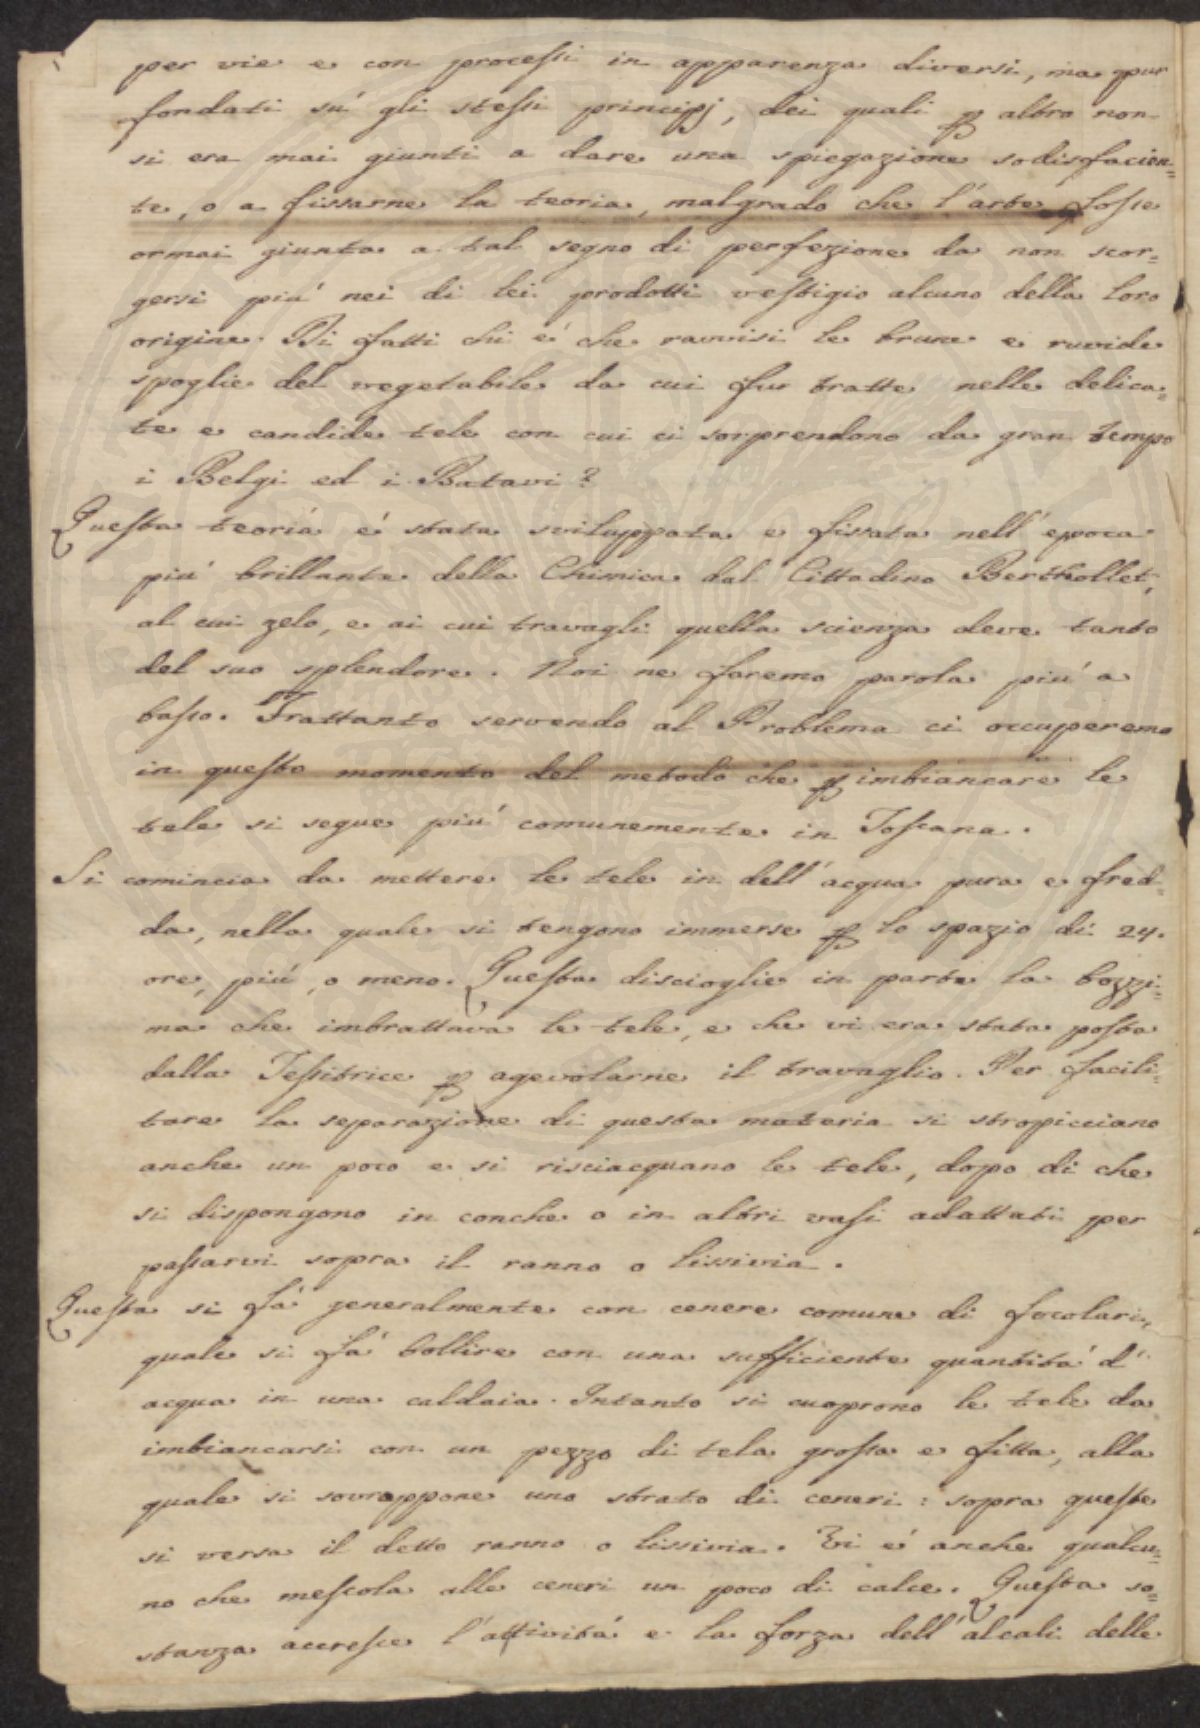 per vie e con processi in apparenza diversi, ma pur
fondati sú gli stessi principj, dei quali ꝑ altro non
si era mai giunti a dare una spiegazione sodisfacien=
te, o a fissarne la teoria, malgrado che l'arte fosse
ormai giunta a tal segno di perfezione da non scor=
gersi piú nei di lei prodotti vestigio alcuno della loro
origine. Di fatti chi é che ravvisi le brune e ruvide
spoglie del vegetabile da cui fur tratte nelle delica=
te e candide tele con cui ci sorprendono da gran tempo
i Belgi ed i Batavi?
Questa teoria é stata sviluppata e fissata nell'epoca
piú brillante della Chimica dal Cittadino Berthollet,
al cui zelo, e ai cui travagli quella scienza deve tanto
del suo splendore. Noi ne faremo parola piú a
basso. Frattanto servendo al Problema ci occuperemo
in questo momento del metodo che ꝑ imbiancare le
tele si segue piú comunemente in Toscana.
Si comincia da mettere le tele in dell'acqua pura e fred=
da, nella quale si tengono immerse ꝑ lo spazio di 24.
ore, piú, o meno. Questa discioglie in parte la bozzi=
ma che imbrattava le tele, e che vi era stata posta
dalla Tessitrice ꝑ agevolarne il travaglio. Per facili=
tare la separazione di questa materia si stropicciano
anche un poco e si risciacquano le tele, dopo di che
si dispongono in conche o in altri vasi adattati per
passarvi sopra il ranno o lissivia.
Questa si fá generalmente con cenere comune di focolari,
quale si fá bollire con una sufficiente quantitá d'
acqua in una caldaia. Intanto si cuoprono le tele da
imbiancarsi con un pezzo di tela grossa e fitta, alla
quale si sovrappone uno strato di ceneri: sopra queste
si versa il detto ranno o lissivia. Vi é anche qualcu=
no che mescola alle ceneri un poco di calce. Questa so=
stanza accresce l'attivitá e la forza dell'alcali delle